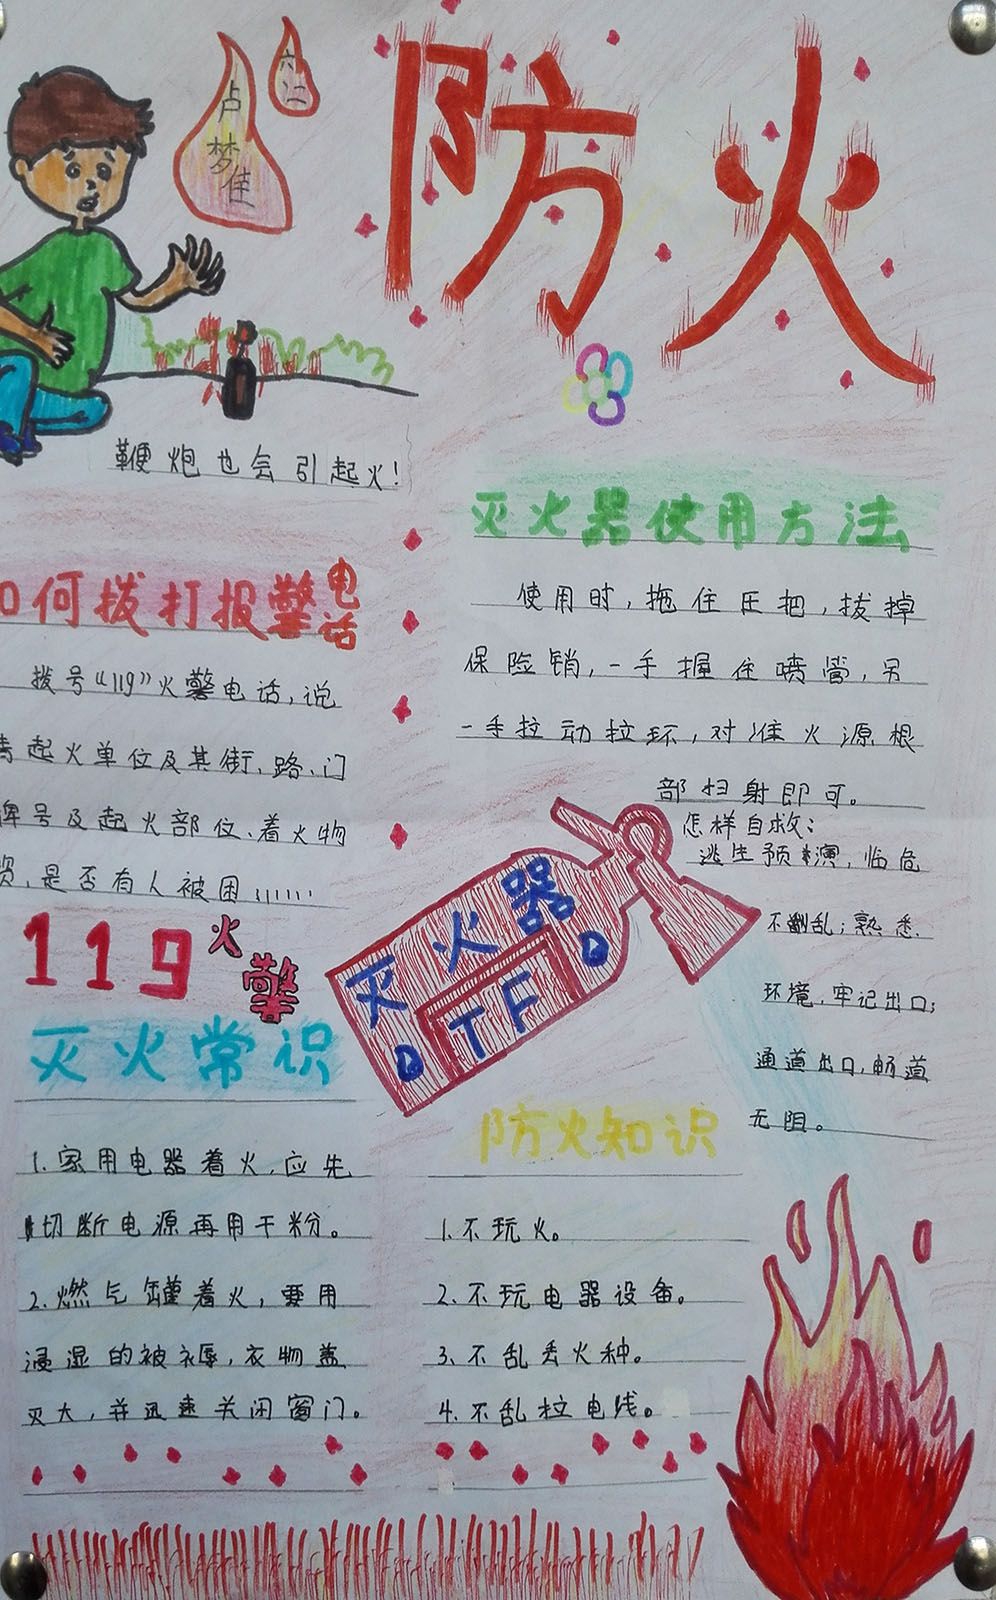 防火
六二
卢梦佳
鞭炮也会引起火!
何拨打报警电话
拨号“119”火警电话,说
起火单位及其街、路、门
牌号及起火部位、着火物
资,是否有人被困……
119火警
灭火器使用方法
使用时,拖住压把,拔掉
保险销,一手握住喷管,另
一手拉动拉环,对准火源根
部扫射即可。
怎样自救:
逃生预演,临危
不乱;熟悉
环境,牢记出口;
通道出口,畅道
无阻。
灭火器
TF
灭火常识
1.家用电器着火,应先
切断电源再用干粉。
2.燃气罐着火,要用
浸湿的被褥,衣物盖
灭火,并迅速关闭窗门。
防火知识
1.不玩火。
2.不玩电器设备。
3.不乱丢火种。
4.不乱拉电线。